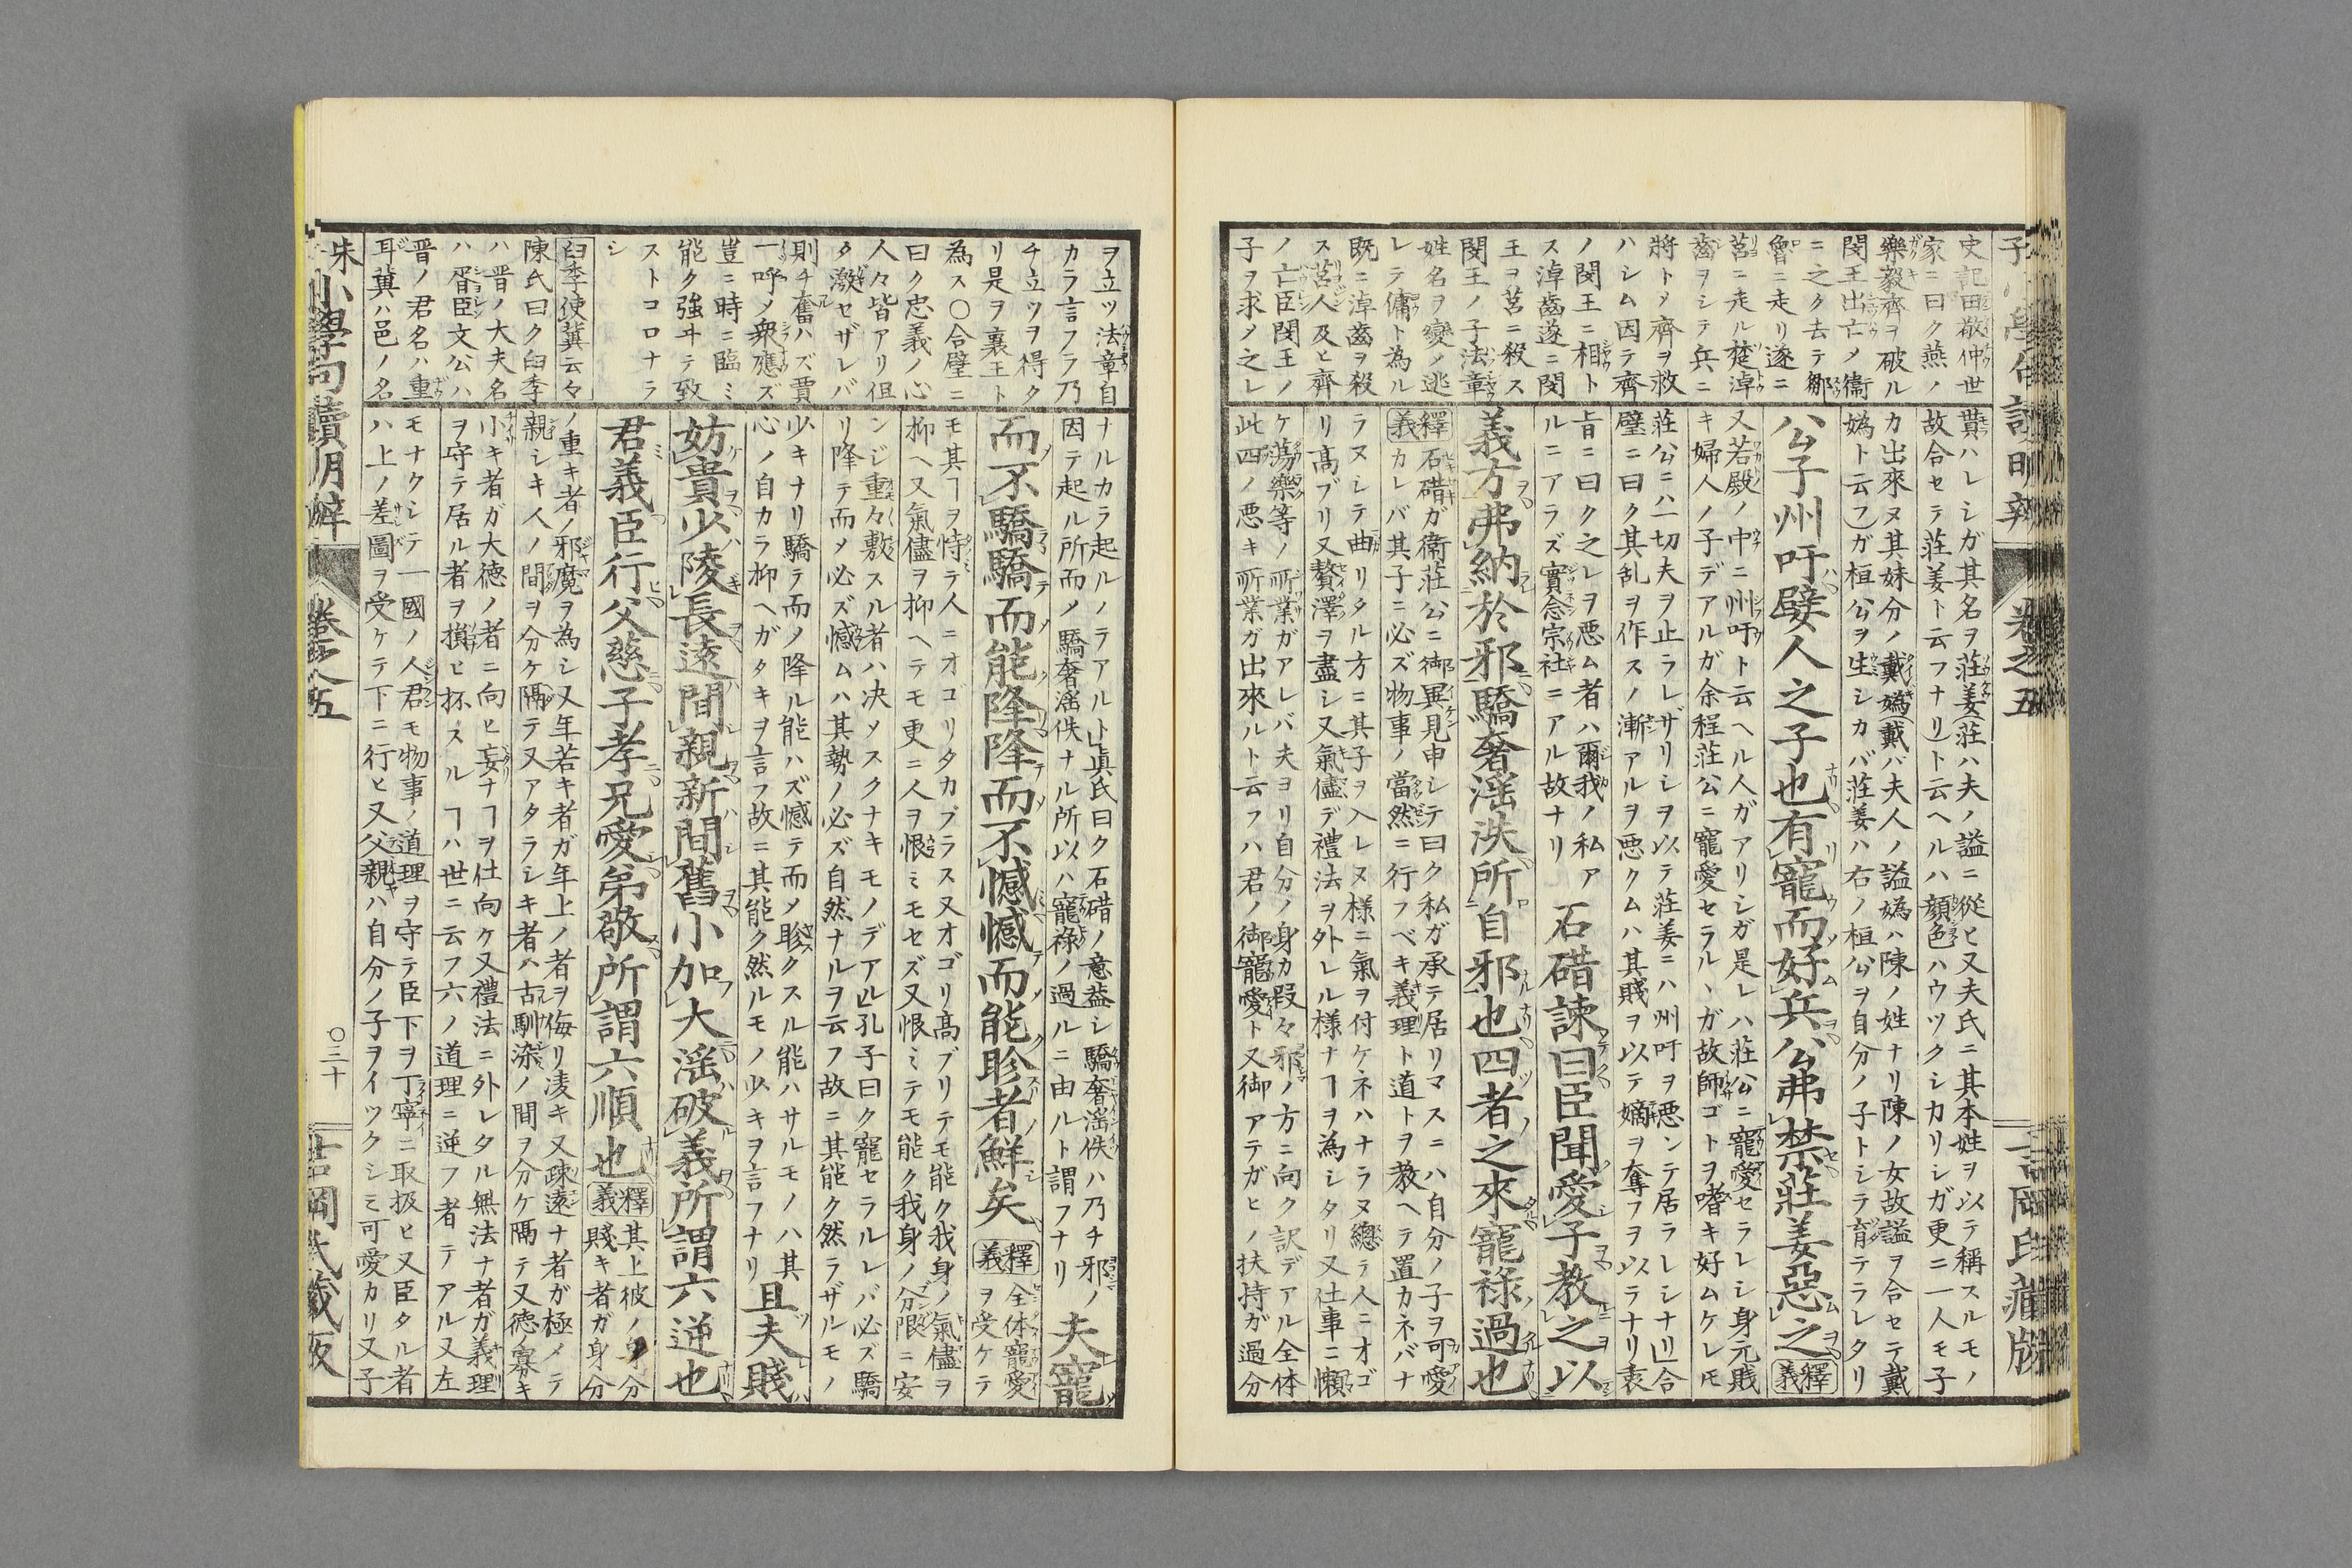 史記田敬仲世
家ニ曰ク燕ノ
樂毅齊ヲ破ル
閔王出亡ノ衞
ニ之ク去テ鄒
魯ニ走リ遂ニ
莒ニ走ル楚淖
齒ヲシテ兵ニ
將トメ齊ヲ救
ハシム因テ齊
ノ閔王ニ相ト
ス淖齒遂ニ閔
王ヲ莒ニ殺ス
閔王ノ子法章
姓名ヲ變ノ逃
レテ傭ト為ル
既ニ淖齒ヲ殺
ス莒人及ヒ齊
ノ亡臣閔王ノ
子ヲ求メ之レ
貰ハレシガ其名ヲ莊姜(莊ハ夫ノ謚ニ從ヒ又夫氏ニ其本姓ヲ以テ稱スルモノ
故合セテ莊姜ト云フナリ)ト云ヘルハ顏色ハウツクシカリシガ更ニ一人モ子
カ出來ヌ其妹分ノ戴嬀(戴バ夫人ノ謚嬀ハ陳ノ姓ナリ陳ノ女故謚ヲ合セテ戴
嬀ト云フ)ガ桓公ヲ生シカバ莊姜ハ右ノ桓公ヲ自分ノ子トシテ育テラレタリ
公子州吁嬖人之子也有寵而好兵公弗禁莊姜惡之 釋義
又若殿ノ中ニ州吁ト云ヘル人ガアリシガ是レハ莊公ニ寵愛セラレシ身元賎
キ婦人ノ子デアルガ余程莊公ニ寵愛セラルヽガ故師ゴトヲ嗜キ好ムケレ𪜈
莊公ニハ一切夫ヲ止ラレザリシヲ以テ莊姜ニハ州吁ヲ悪ンテ居ラレシナリ」合
璧ニ曰ク其乱ヲ作スノ漸アルヲ悪クムハ其賎ヲ以テ嫡ヲ奪フヲ以ラナリ衷
旨ニ曰ク之レヲ悪ム者ハ爾我ノ私ア
ルニアラズ實念宗社ニアル故ナリ
石碏諫曰臣聞愛子教之以
義方弗納於邪驕奢淫泆所自邪也四者之來寵祿過也
釋義 石碏ガ衞莊公ニ御異見申シテ曰ク私ガ承テ居リマスニハ自分ノ子ヲ可愛
カレバ其子ニ必ズ物事ノ當然ニ行フベキ義理ト道トヲ教ヘテ置カネバナ
ラヌシテ曲リタル方ニ其子ヲ入レヌ樣ニ氣ヲ付ケネハナラヌ總テ人ニオゴ
リ高ブリ又贅澤ヲ盡シ又氣儘デ禮法ヲ外レル樣ナヿヲ為シタリ又仕事ニ懶
ケ蕩樂等ノ所業ガアレバ夫ヨリ自分ノ身カ段々邪ノ方ニ向ク訳デアル全体
此四ノ悪キ所業ガ出來ルト云フハ君ノ御寵愛ト又御アテガヒノ扶持ガ過分
ヲ立ツ法章自
カラ言フラ乃
チ立ツヲ得ク
リ是ヲ襄王ト
為ス〇合璧ニ
曰ク忠義ノ心
人々皆アリ但
タ激セザレバ
則チ奮ハズ賈
一呼メ衆應ズ
豈ニ時ニ臨ミ
能ク強ヰテ致
ストコロナラ
シ
臼季使冀云々
陳氏曰ク臼季
ハ晋ノ大夫名
ハ胥臣文公ハ
晋ノ君名ハ重
耳冀ハ邑ノ名
ナルカラ起ルノラアルト」眞氏曰ク石碏ノ意葢シ驕奢淫佚ハ乃チ邪ノ
因テ起ル所而ノ驕奢淫佚ナル所以ハ寵祿ノ過ルニ由ルト謂フナリ
夫寵
而不驕驕而能降降而不憾憾而能眕者鮮矣 釋義
全体寵愛
ヲ受ケテ
モ其ヿヲ恃テ人ニオコリタカブラス又オゴリ高ブリテモ能ク我身ノ氣儘ヲ
抑ヘ又氣儘ヲ抑ヘテモ更ニ人ヲ恨ミモセズ又恨ミテモ能ク我身ノ分限ニ安
ンジ重々敷スル者ハ决ソスクナキモノデアル」孔子曰ク寵セラルレバ必ズ驕
リ降テ而メ必ズ憾ムハ其勢ノ必ズ自然ナルヲ云フ故ニ其能ク然ラザルモノ
少キナリ驕テ而ノ降ル能ハズ憾テ而メ眕クスル能ハサルモノハ其
心ノ自カラ抑ヘガタキヲ言フ故ニ其能ク然ルモノ少キヲ言フナリ
且夫賤
妨貴少陵長遠間親新間舊小加大淫破義所謂六逆也
君義臣行父慈子孝兄愛弟敬所謂六順也 釋義
其上彼ノ身分
賎キ者ガ身分
ノ重キ者ノ邪魔ヲ為シ又年若キ者ガ年上ノ者ヲ侮リ凌キ又疎遠ナ者ガ極メテ
親シキ人ノ間ヲ分ケ隔テ又アタラシキ者ハ古馴染ノ間ヲ分ケ隔テ又徳ノ寡キ
小キ者ガ大徳ノ者ニ向ヒ妄ナヿヲ仕向ケ又禮法ニ外レタル無法ナ者ガ義理
ヲ守テ居ル者ヲ損ヒ抔スルヿハ世ニ云フ六ノ道理ニ逆フ者テアル又左
モナクシテ一國ノ人君モ物事ノ道理ヲ守テ臣下ヲ丁寧ニ取扱ヒ又臣タル者
ハ上ノ差圖ヲ受ケテ下ニ行ヒ又父親ハ自分ノ子ヲイツクシミ可愛カリ又子
小學句讀明辨 卷之五 〇三十 吉岡氏藏版